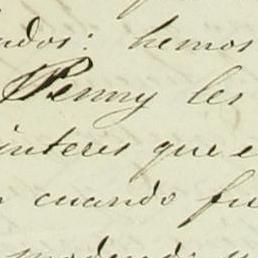 ados: hemos
Penny les
interes que e
cuando fu